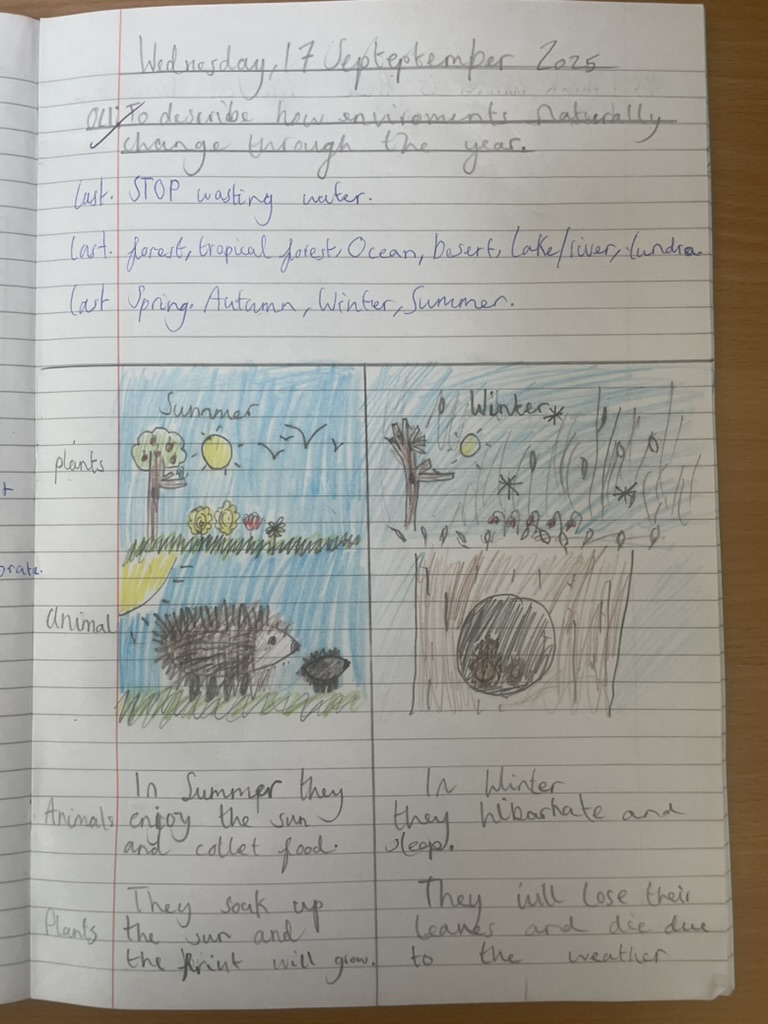 Wednesday, 17 Septeptember 2025
To describe how enviroments naturally
change through the year.
Last. STOP wasting water.
Last. forest, tropical forest, Ocean, Desert, Lake/river, tundra
last Spring. Autumn, Winter, Summer.
Summer
Winter
plants
orate.
animal
Animals
In Summer they
enjoy the sun
and collet food.
In Winter
they hibarnate and
sleep.
Plants
They soak up
the sun and
the friut will grow.
They will lose their
leaves and die due
to the weather